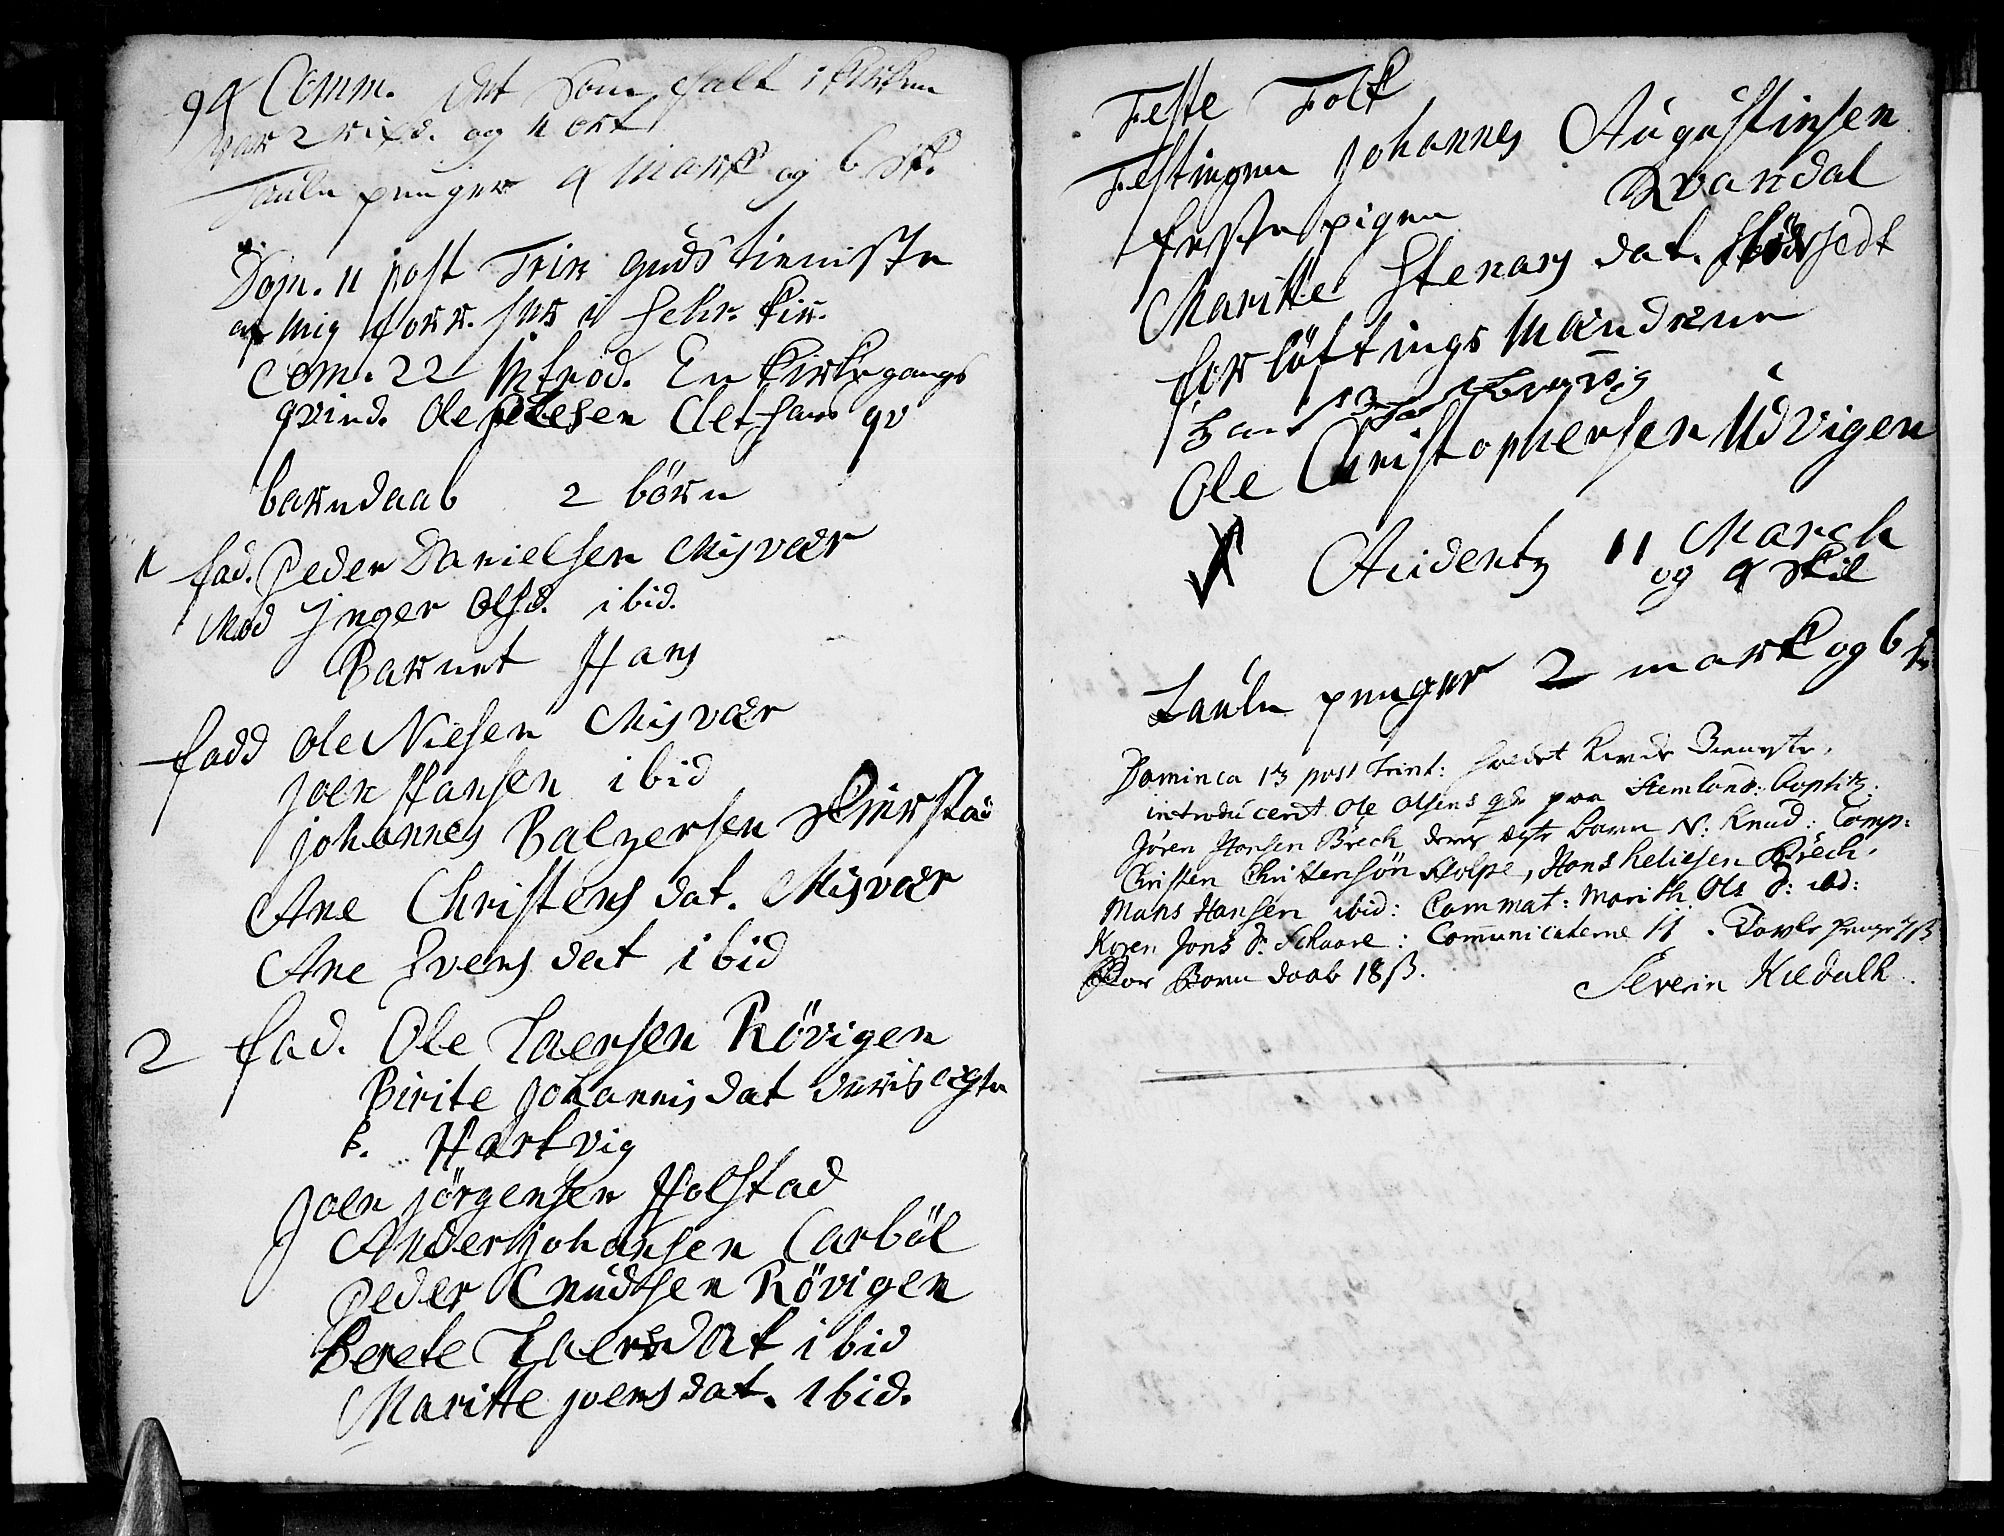 94 Comm. det som falt i kirken
var 2 rixd. og 4 ort
Taule penger 4 Mark og 6 sk.
Dom. 11 post Trin gudstienniste
af mig forr. her i kir.
Com. 22 Introd. En kirkegangs
qvind. Ole Olesen hans qv
barndaab 2 börn
1 fad. Peder Danielsen Misvær
Mod Inger Olsd. ibid.
Barnet Hans
fadd Ole Nielsen Misvær
Joen Hansen ibid
Johannes Balzersen
Ane Christens dat. Misvær
Ane Ivers dat ibid
2 fad. Ole Laersen Rövigen
Birite Johannis dat deris ægte
b. Hartvig
Joen Jörgensen Holstad
Anders Johansen Carböl
Peder Cnudtsen Rövigen
Berete Laersdat ibid
Maritte Joensdat. ibid.
Feste Folk
Festingen Johannes Augustinsen
Qvandal
feste pigen
Maritte Stenars dat.
forlöftings Mændene
Ole Christophersen Udvigen
Accidentz 11 March
og 4 skil
Taule penger 2 mark og 6
Dominica 13 post Trint: holdet
introducerit Ole Olsens paa Stemland: baptitz.
Jören Hansen Brech deres ægte barn N: Knud: Comp:
Christen Christensön Stolpe, Hans heliesen Brech.
Mons Hansen ibid: Commat: Marith Ols D: ibd:
Karen Jons D: Schaare: Communicaterne 11. Tavle Penge
for Barn daab 18 ß.
Severin Kildalh.